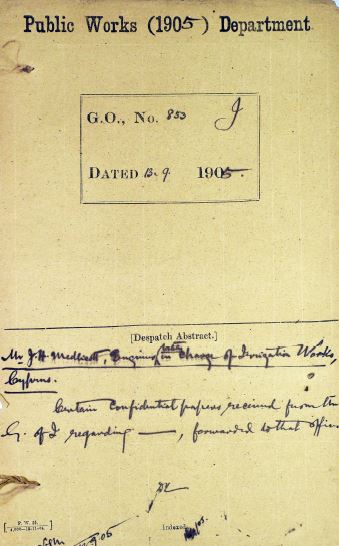 Public Works (1905) Department.
G.O., No. 853 J
DATED 13. 9. 1905.
[Despatch Abstract.]
Mr J. H. Medlicott, Engineer late in Charge of Irrigation Works,
Cyprus.
Certain Confidential papers received from the
G. of I regarding —, forwarded to that officer
P. W. D.
Indexed
9.05